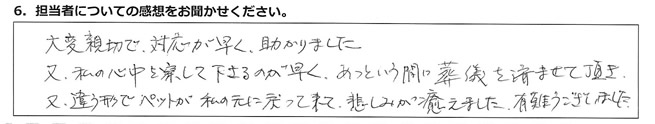 6. 担当者についての感想をお聞かせください。
大変親切で、対応が早く、助かりました
又、私の心中を察して下さるのが早く、あっという間に葬儀を済ませて頂き、
又、違う形でペットが私の元に戻って来て、悲しみが癒えました。有難うございました